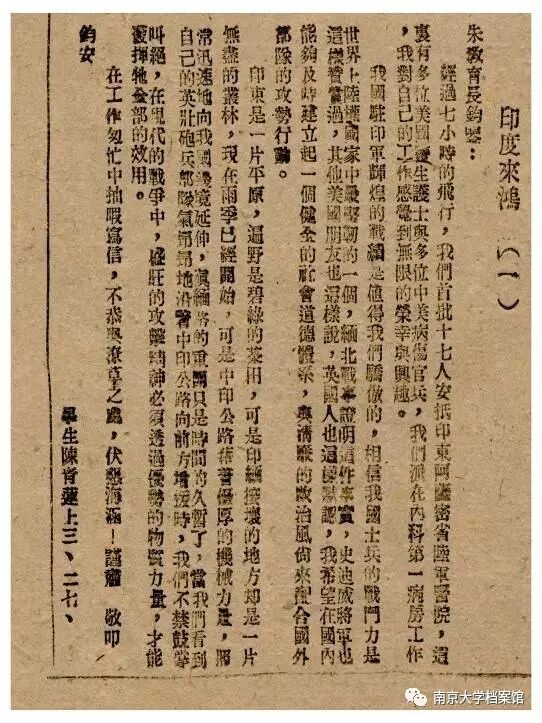 印度來鴻（一）
朱教育長鈞鑒：
經過七小時的飛行，我們首批十七人安抵印東阿薩密省陸軍醫院，這
裏有多位美國醫生護士與多位中美病傷官兵，我們派在內科第一病房工作
，我對自己的工作感覺到無限的榮幸與興趣。
我國駐印軍輝煌的戰績是值得我們驕傲的，相信我國士兵的戰鬥力是
世界上陸權國家中最堅韌的一個，緬北戰事證明這件事實，史迪威將軍也
這樣贊賞過，其他美國朋友也這樣說，英國人也這樣默認，我希望在國內
能夠及時建立起一個健全的社會道德體系，與清廉的政治風尚來配合國外
部隊的攻勢行動。
印東是一片平原，遍野是碧綠的茶田，可是印緬接壤的地方却是一片
無盡的叢林，現在雨季已經開始，可是中印公路藉著優厚的機械力量，將
常迅速地向我國邊境延伸，滇緬路的重開只是時間的久暫了，當我們看到
自己的英壯砲兵部隊氣昂昂地沿著中印公路向前方增援時，我們不禁鼓掌
叫絕，在現代的戰爭中，旺的攻擊精神必須透過優勢的物質力量，才能
發揮牠全部的效用。
在工作匆忙中抽暇寫信，不恭與潦草之處，伏懇海涵！謹肅 敬叩
鈞安
畢生陳育蓮上三、二七、
南京大学档案馆